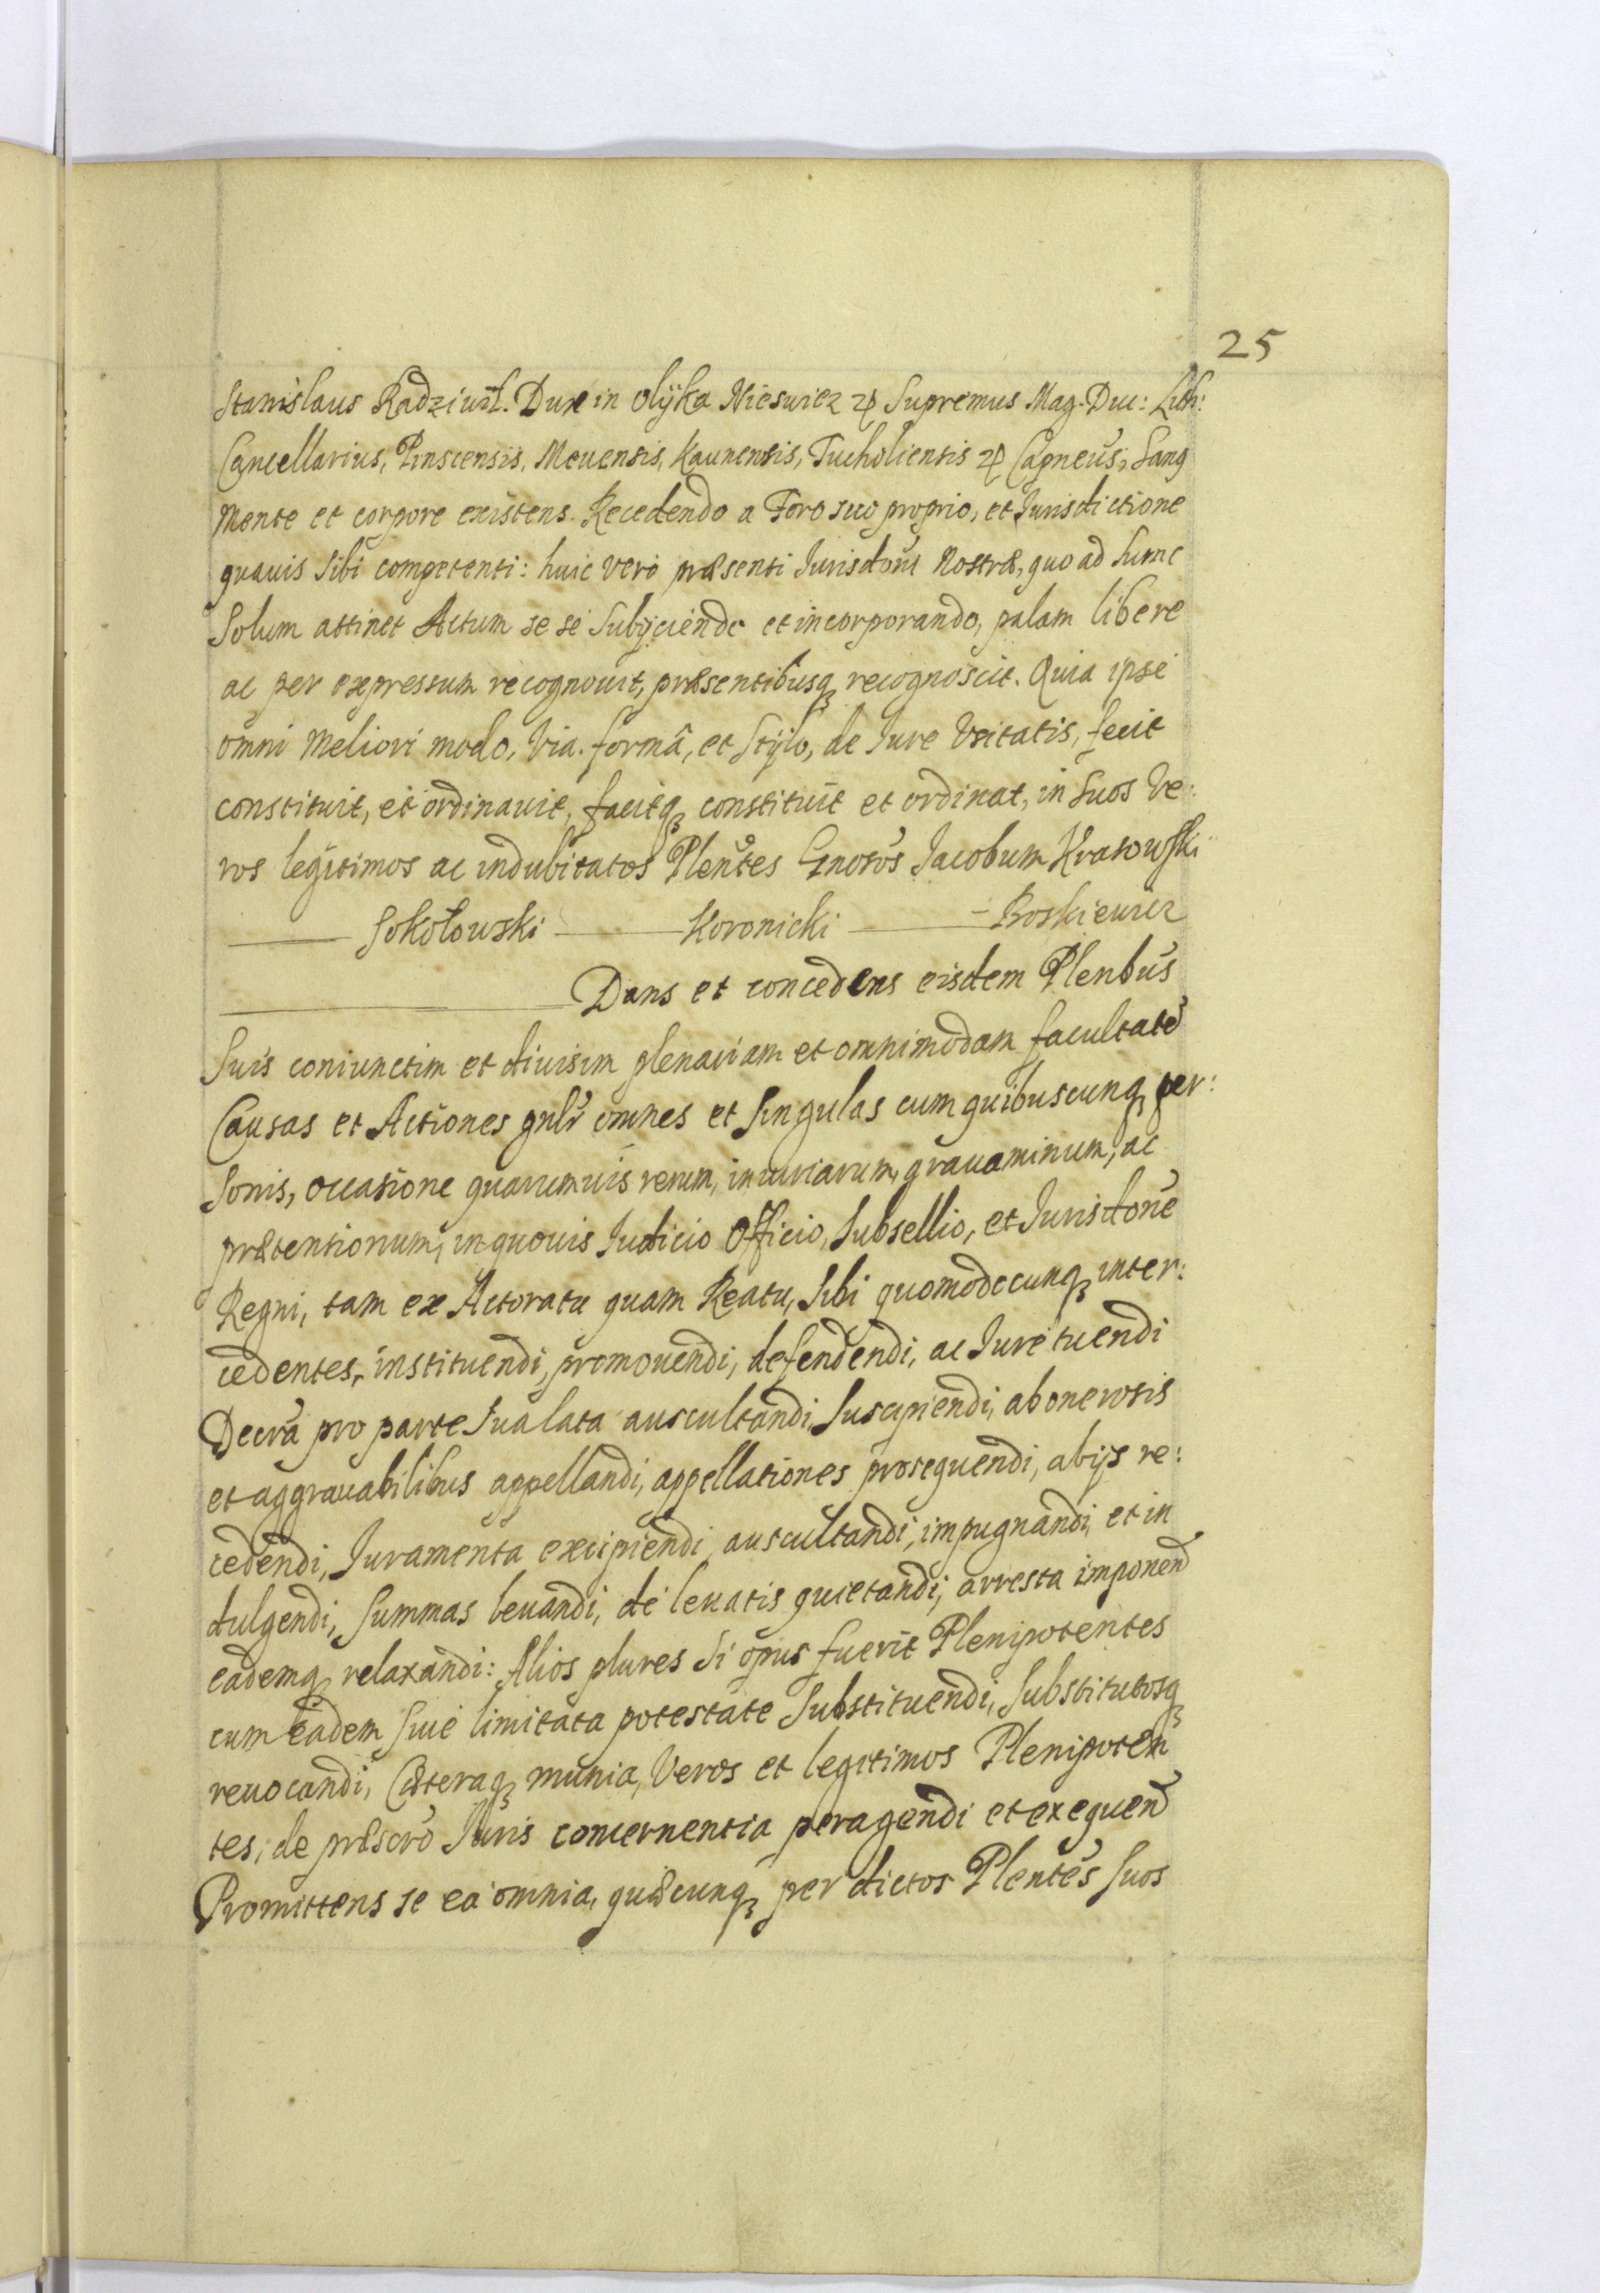 25
Stanislaus Radziwił. Dux in Olÿka Nieswiez etc Supremus Mag. Duc: Lith:
Cancellarius, Pinscensis, Meuensis, Kaunensis, Tucholiensis etc Capneus, Sana
mente et corpore existens. Recedendo a Foro suo proprio, et Jurisdictione
quauis sibi competenti: huic vero præsenti Jurisdoni Nostræ, quo ad hunc
solum attinet Actum se se Subÿciendo et incorporando, palam libere
ac per expressum recognouit, præsentibusq recognoscit. Quia ipse
omni Meliori modo, Via. formâ, et Stÿlo, de Jure Vsitatis, fecit
constituit, et ordinauit, facitq constituit et ordinat, in Suos Ve:
ros legitimos ac indubitatos Plentes Gnosos Jacobum Kratowski
Sokołowski Koronicki Roskiewicz
Dans et concedens eisdem Plenbus
Suis coniunctim et diuisim plenariam et omnimodam facultate
Causas et Actiones gnlr omnes et Singulas cum quibuscunq per:
sonis, occasione quarumuis rerum, iniuriarum, grauaminum, ac
prætensionum, in quouis Judicio Officio, Subsellio, et Jurisdone
Regni, tam ex Actoratu quam Reatu, Sibi quomodocunq inter:
cedentes, instituendi, promouendi, defendendi, ac Jure tuendi
Decra pro parte sua lata auscultandi, suscipiendi, ab onerosis
et aggrauabilibus appellandi, appellationes prosequendi, ab ÿs re:
cedendi, Juramenta excipiendi auscultandi, impugnandi, et in
dulgendi, Summas leuandi, de leuatis quietandi, arresta imponend
eademq relaxandi: Alios plures Si opus fuerit Plenipotentes
cum eadem Siue limitata potestate Substituendi, Substitutosq
reuocandi, Cæteraq munia, Veros et legitimos Plenipoten
tes, de præscro Juris concernentia peragendi et exequend
Promittens se ea omnia, quæcunq per dictos Plentes Suos